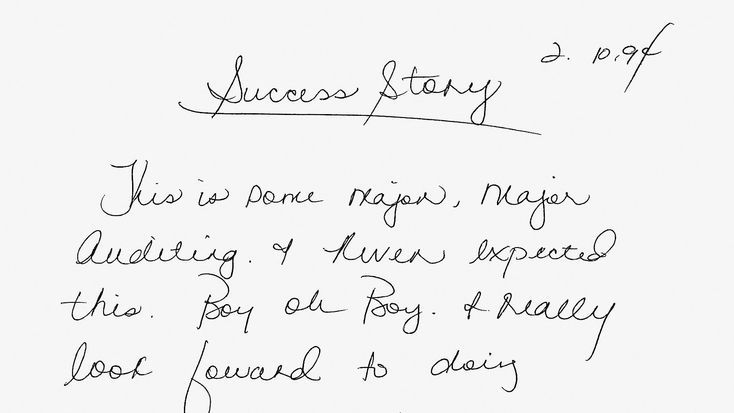 2.10.94
Success Story
This is some major, major
auditing. I never expected
this. Boy oh Boy. I really
look forward to doing